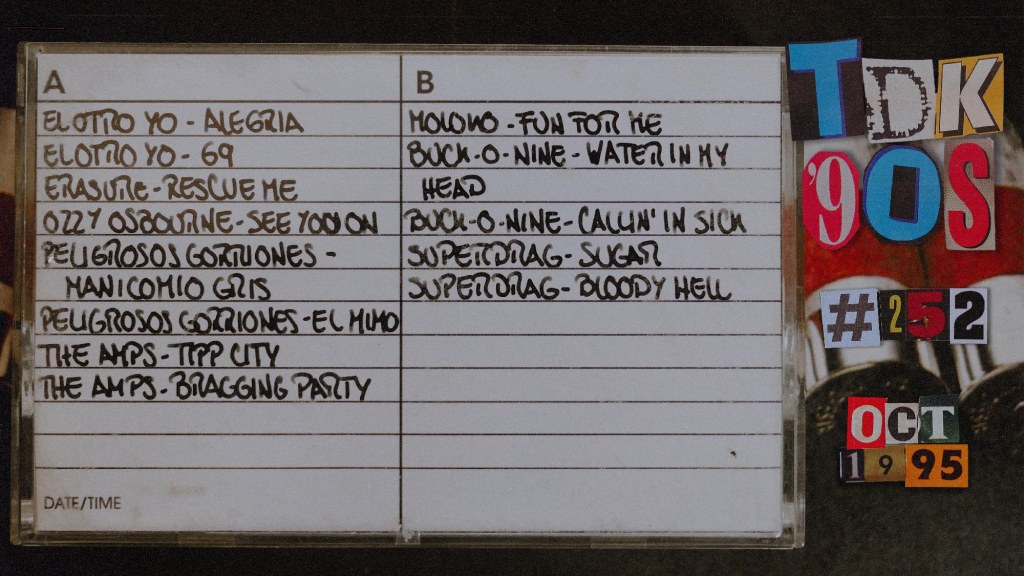 A
EL OTRO YO - ALEGRIA
EL OTRO YO - 69
ERASURE - RESCUE ME
OZZY OSBOURNE - SEE YOU ON
PELIGROSOS GORRIONES -
MANICOMIO GRIS
PELIGROSOS GORRIONES - EL MIMO
THE AMPS - TIPP CITY
THE AMPS - BRAGGING PARTY
DATE/TIME
B
MOLOKO - FUN FOR ME
BUCK-O-NINE - WATER IN MY
HEAD
BUCK-O-NINE - CALLIN' IN SICK
SUPERDRAG - SUGAR
SUPERDRAG - BLOODY HELL
TDK
'90S
#252
OCT
1995